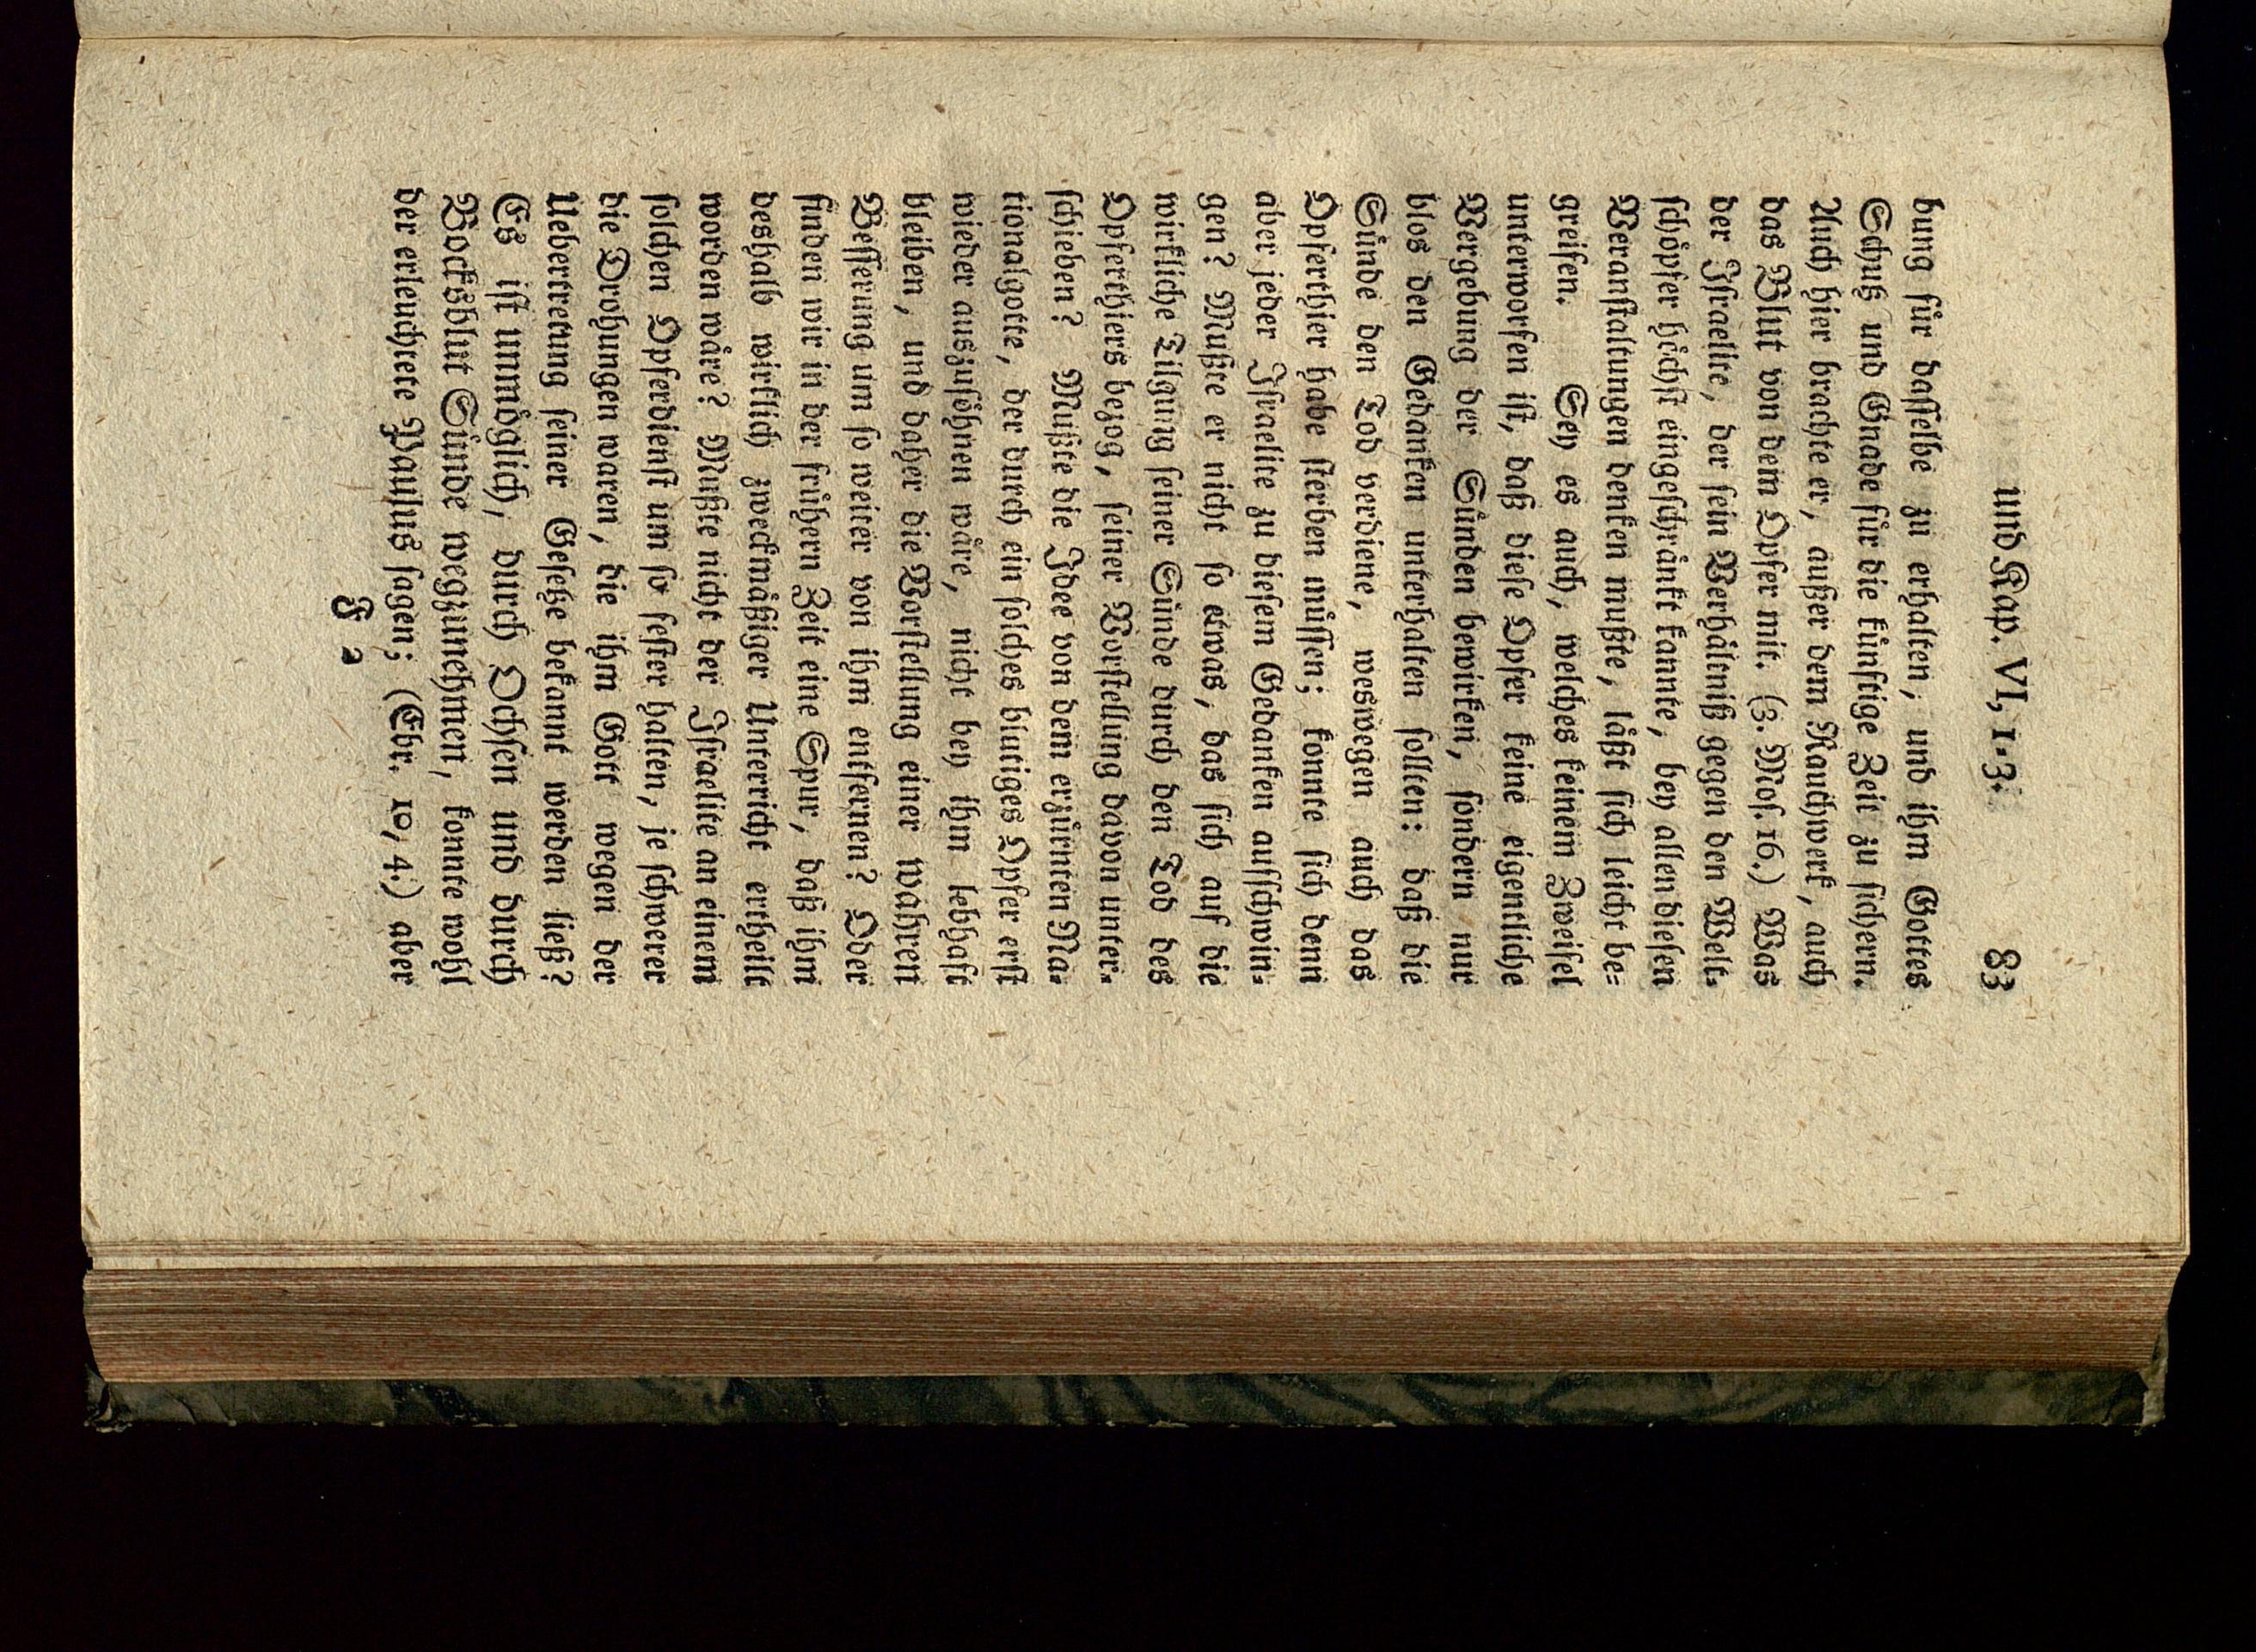 und Kap. VI, 1-3. 83
bung für daſſelbe zu erhalten, und ihm Gottes
Schutz und Gnade für die künftige Zeit zu ſichern.
Auch hier brachte er, außer dem Rauchwerk, auch
das Blut von dem Opfer mit. (3. Moſ. 16.) Was
der Iſraelite, der ſein Verhältniß gegen den Welt-
ſchöpfer höchſt eingeſchränkt kannte, bey allen dieſen
Veranſtaltungen denken mußte, läßt ſich leicht be-
greifen. Sey es auch, welches keinem Zweifel
unterworfen iſt, daß dieſe Opfer keine eigentliche
Vergebung der Sünden bewirken, ſondern nur
blos den Gedanken unterhalten ſollten: daß die
Sünde den Tod verdiene, weswegen auch das
Opferthier habe ſterben müſſen; konnte ſich denn
aber jeder Iſraelite zu dieſem Gedanken aufſchwin-
gen? Mußte er nicht ſo etwas, das ſich auf die
wirkliche Tilgung ſeiner Sünde durch den Tod des
Opferthiers bezog, ſeiner Vorſtellung davon unter-
ſchieben? Mußte die Idee von dem erzürnten Na-
tionalgotte, der durch ein ſolches blutiges Opfer erſt
wieder auszuſöhnen wäre, nicht bey ihm lebhaft
bleiben, und daher die Vorſtellung einer wahren
Beſſerung um ſo weiter von ihm entfernen? Oder
finden wir in der frühern Zeit eine Spur, daß ihm
deshalb wirklich zweckmäßiger Unterricht ertheilt
worden wäre? Mußte nicht der Iſraelite an einem
ſolchen Opferdienſt um ſo feſter halten, je ſchwerer
die Drohungen waren, die ihm Gott wegen der
Uebertretung ſeiner Geſetze bekannt werden ließ?
Es iſt unmöglich, durch Ochſen und durch
Bocksblut Sünde wegzunehmen, konnte wohl
der erleuchtete Paulus ſagen; (Ebr. 10, 4.) aber
F 2